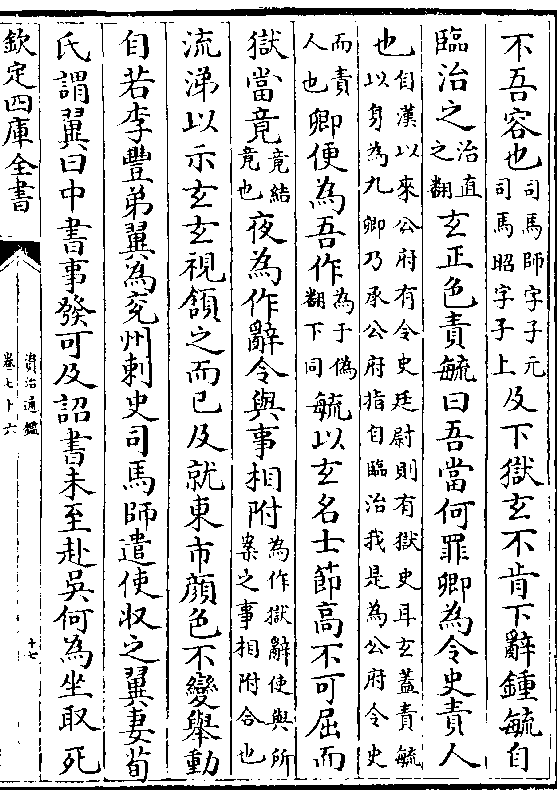 不吾容也司馬師字子元司馬昭字子上及下獄玄不肯下辭鍾毓自
臨治之治直之翻玄正色責毓曰吾當何罪卿為令史責人
也自漢以來公府有令史廷尉則有獄史耳玄蓋責毓以身為九卿乃承公府指自臨治我是為公府令史
而責人也卿便為吾作為于偽翻下同毓以玄名士節高不可屈而
獄當竟竟結竟也夜為作辭令與事相附為作獄辭使與所案之事相附合也
流涕以示玄玄視頷之而已及就東市顔色不變舉動
自若李豐弟翼為兖州刺史司馬師遣使收之翼妻荀
氏謂翼曰中書事發可及詔書未至赴吳何為坐取死
欽定四庫全書
資治通鑑
卷七十六
十七